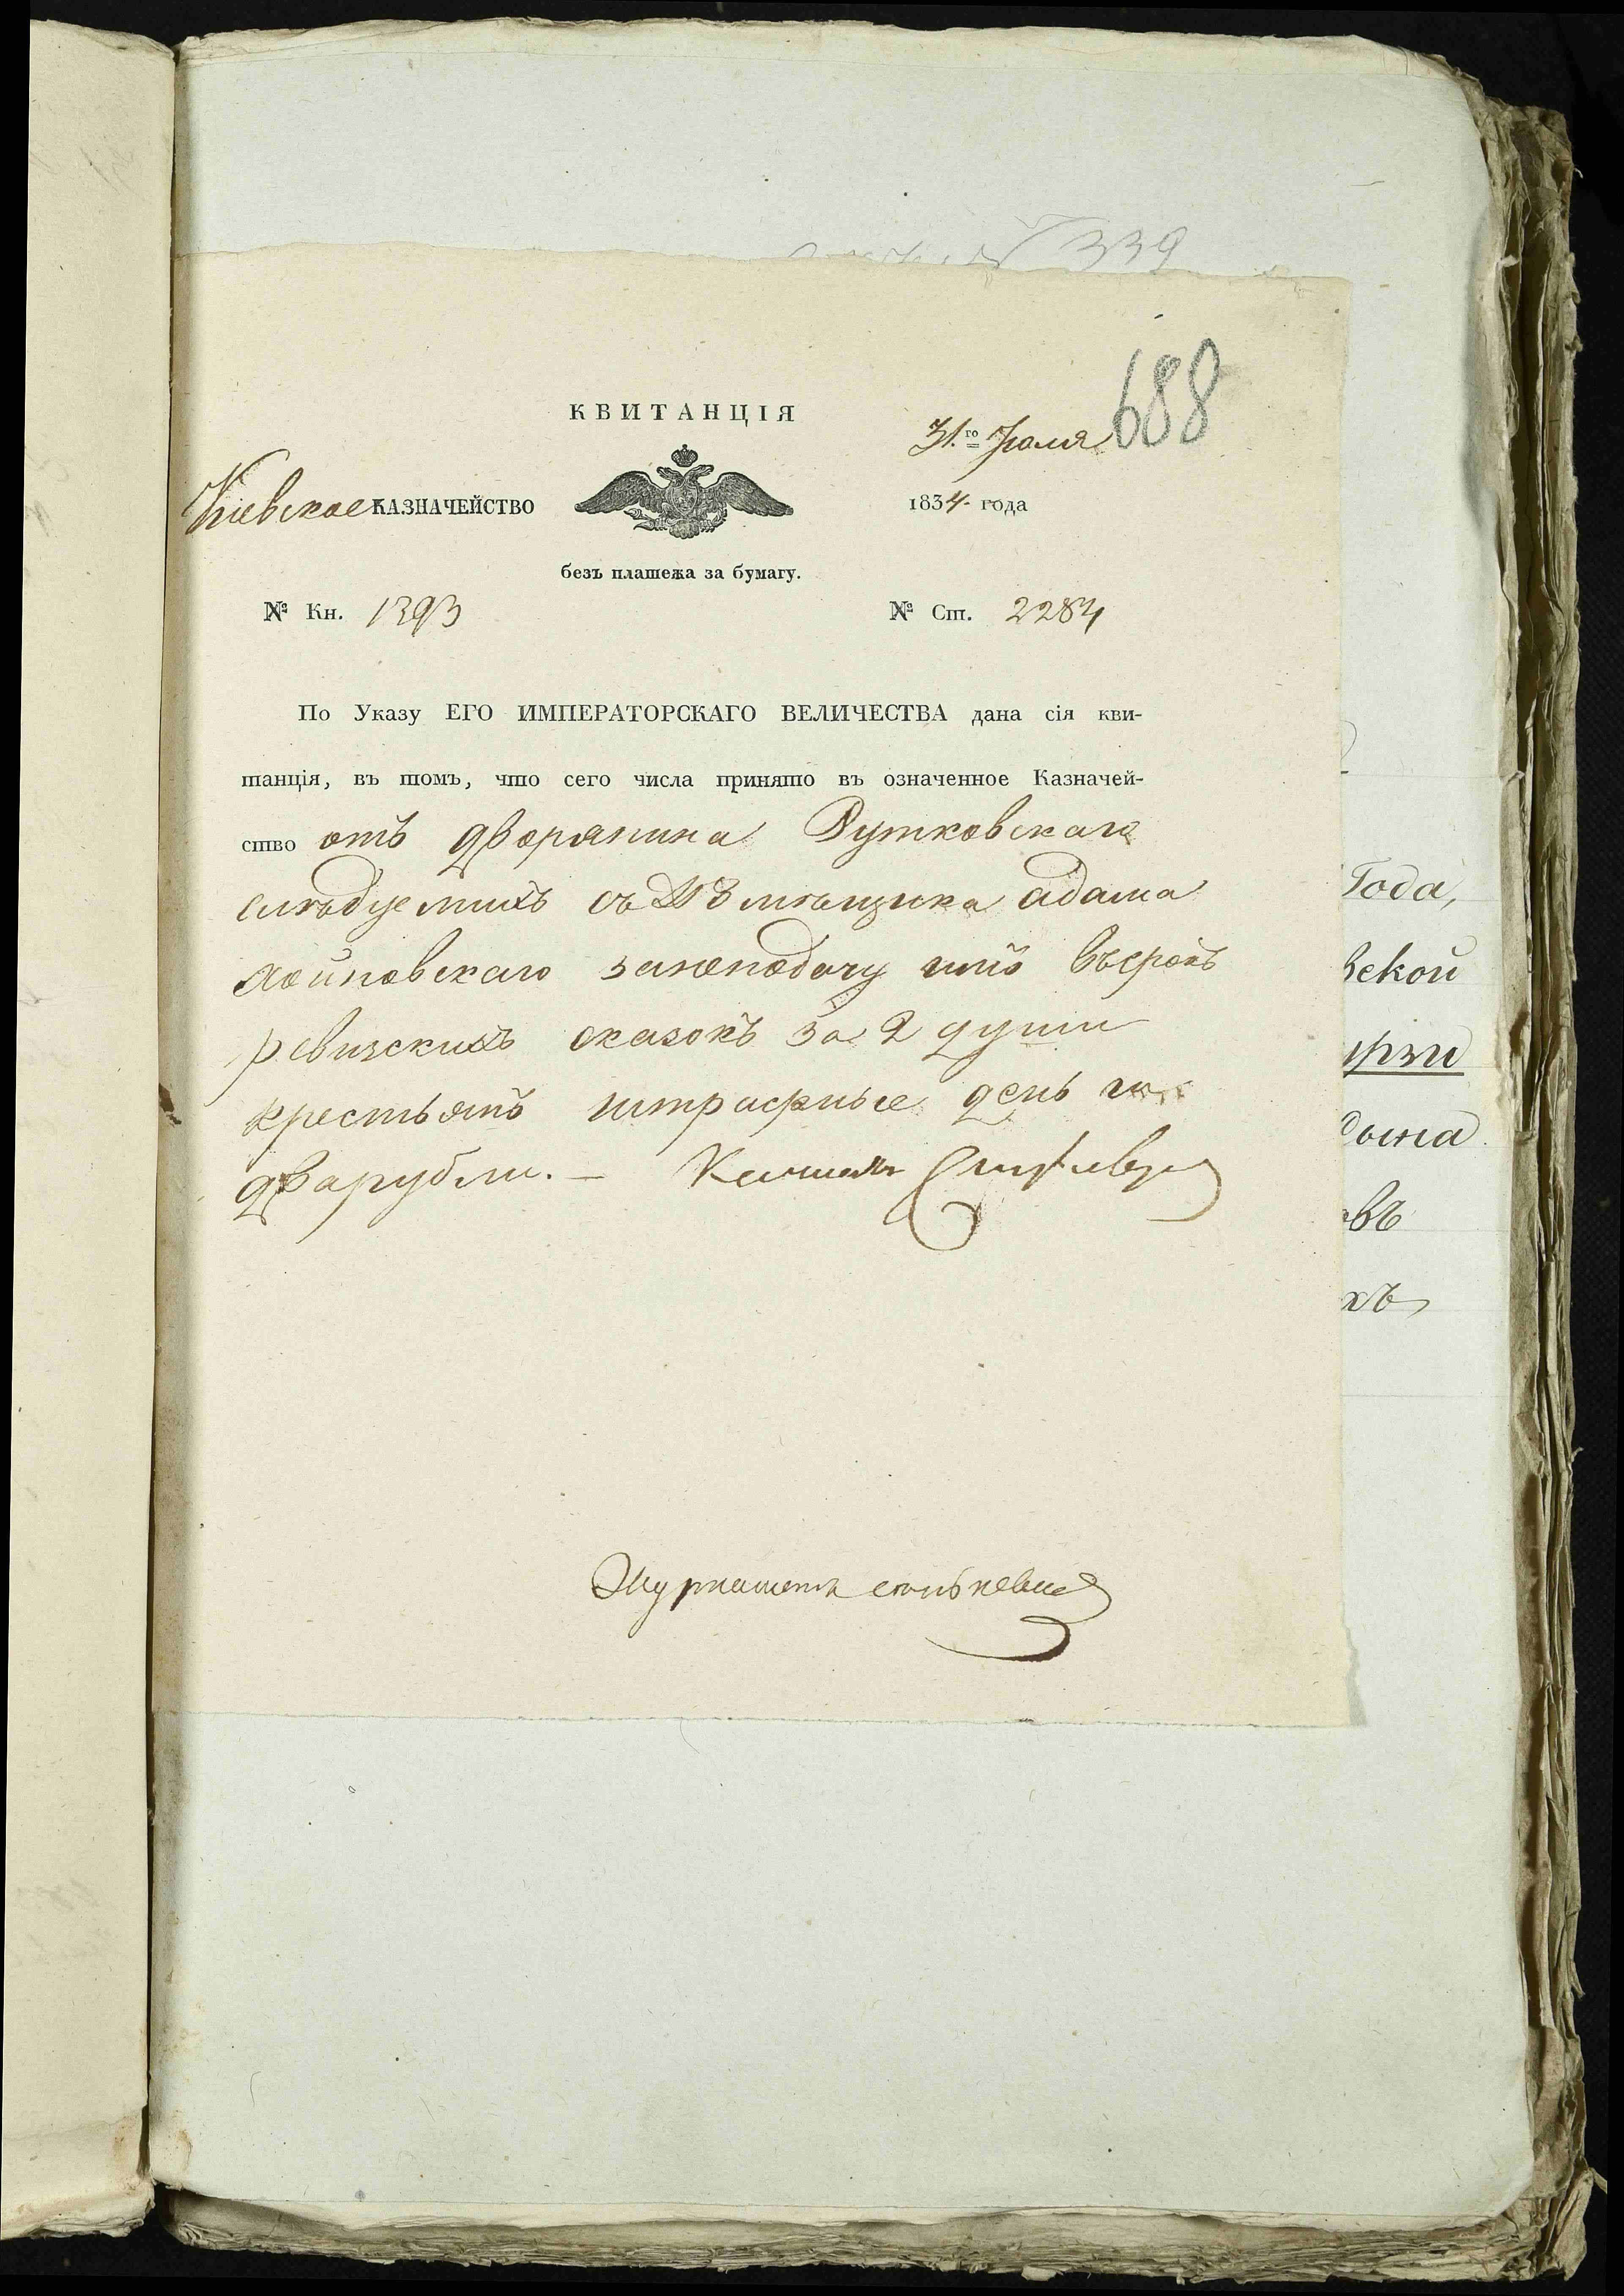 339
688
КВИТАНЦІЯ
31.го Іюля
Кіевское КАЗНАЧЕЙСТВО
1834 года
безъ платежа за бумагу.
№ Кн. 1393
№ Ст. 2284
По Указу ЕГО ИМПЕРАТОРСКАГО ВЕЛИЧЕСТВА дана сія кви-
танція, въ томъ, что сего числа принято въ означенное Казначей-
ство отъ дворянина Рутковскаго
слѣдуемихъ съ адама
занеподачу имъ въсрокъ
ревизскихъ сказокъ за 2 души
крестьянъ штрафные день
дварубли. —
Года,
ской
рзи
ына
овъ
хъ